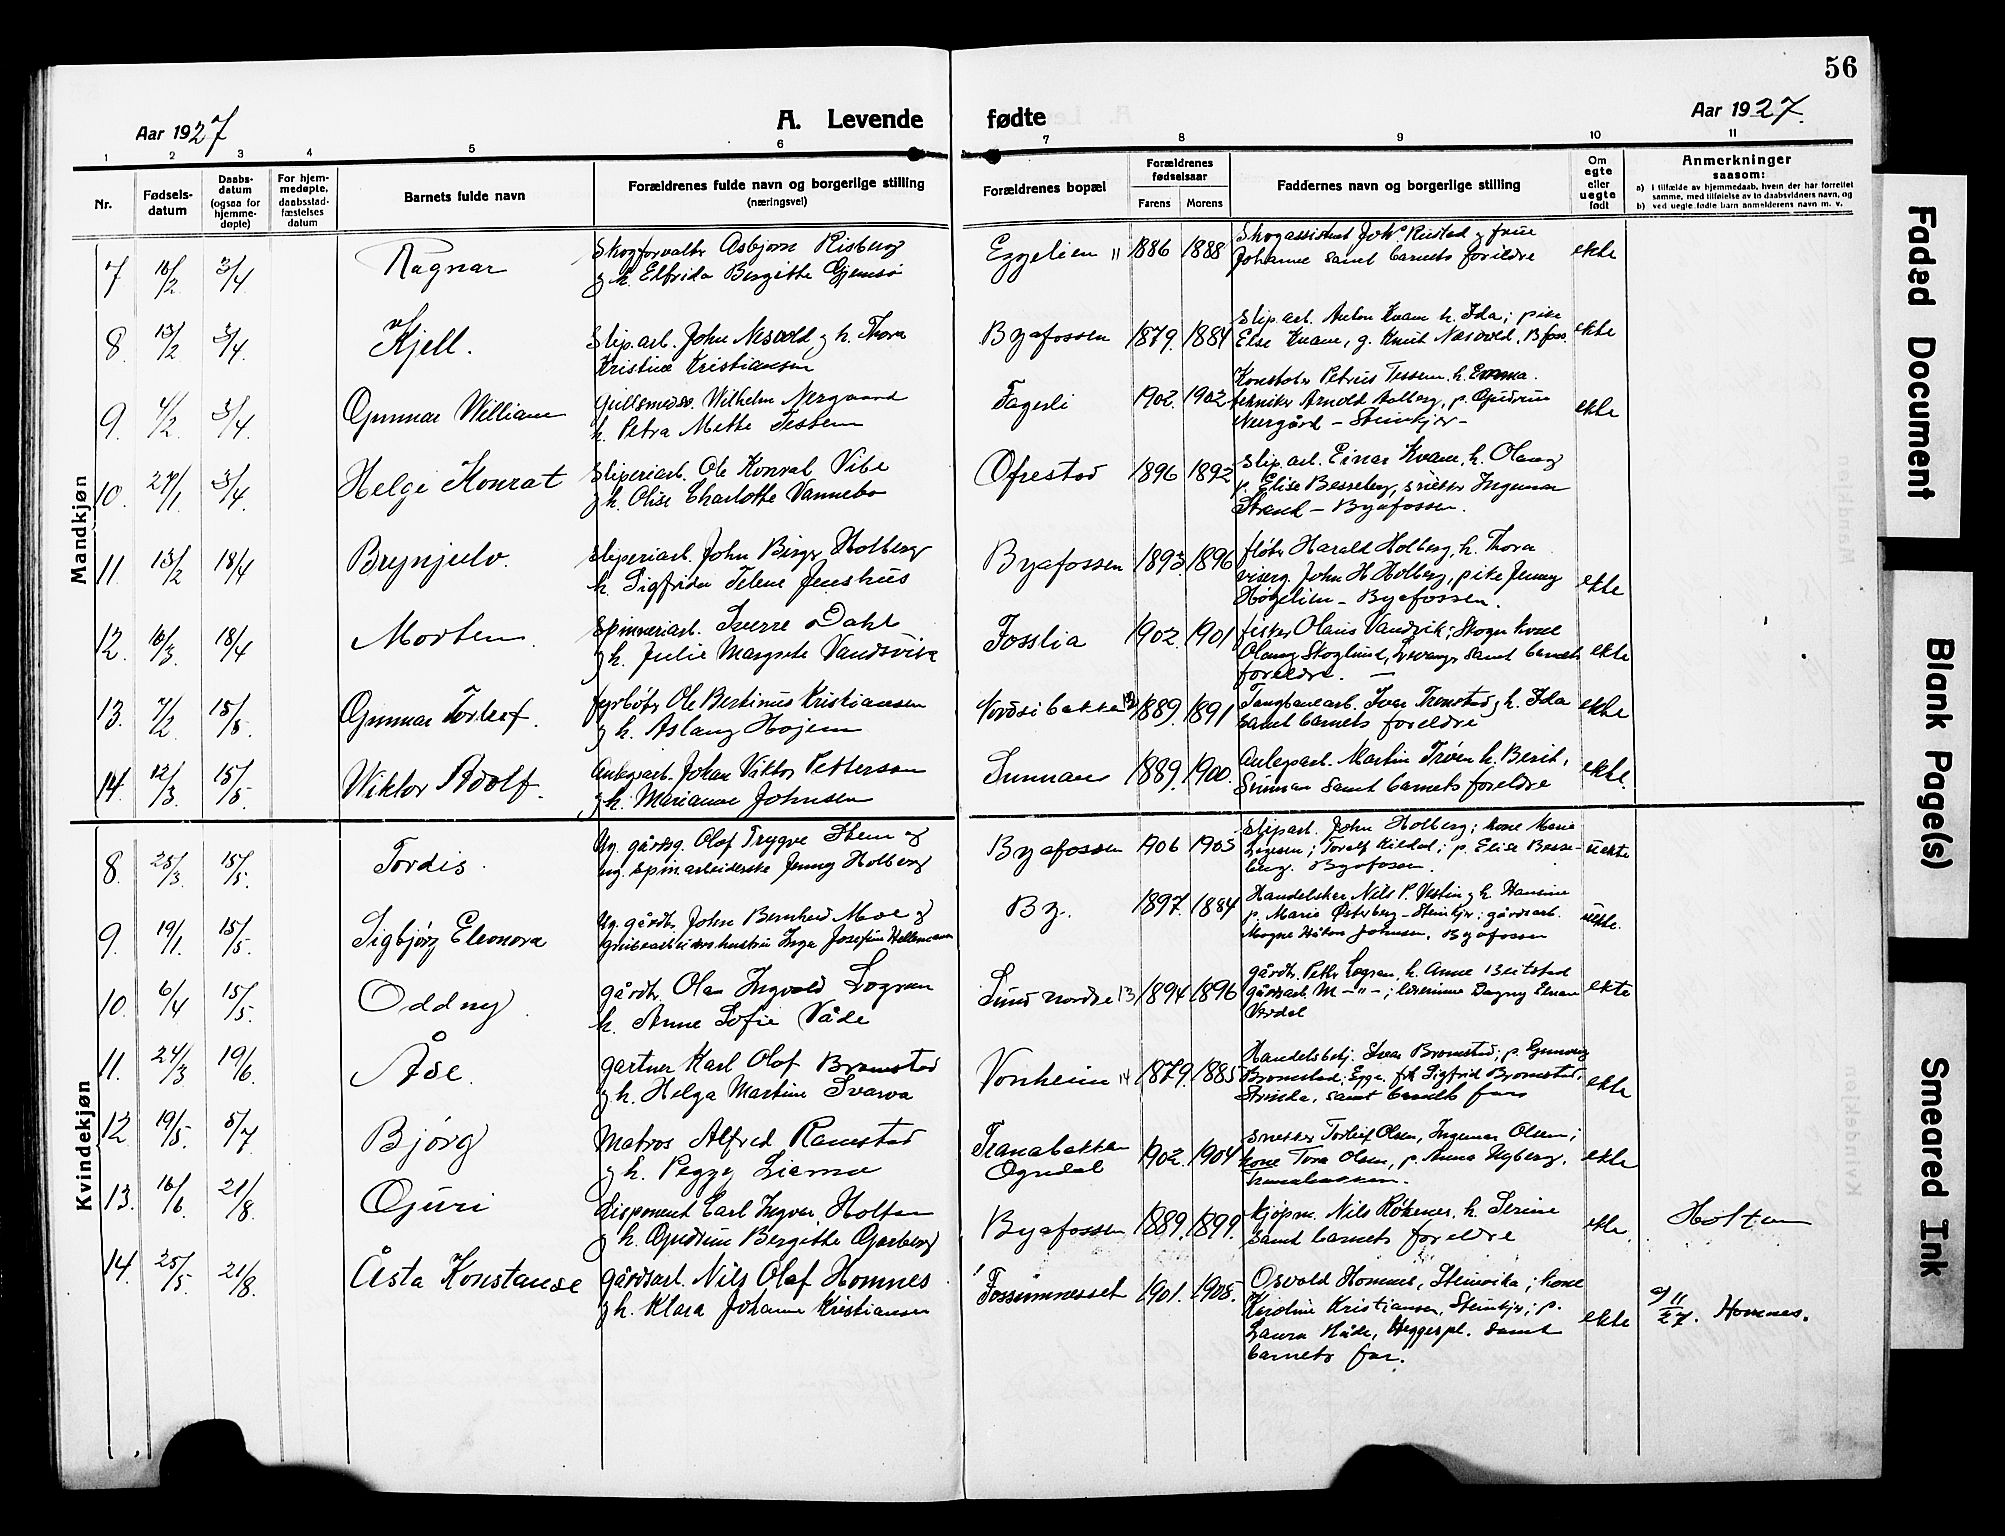 56
Aar 1927
A. Levende fødte
Aar 1927.
1 2 3 4 5 6 7 8 9 10 11
Nr.
Fødsels-
datum
Daabs-
datum
(ogsaa for
hjemme-
døpte)
For hjem-
medøpte,
daabsstad-
fæstelses
datum
Barnets fulde navn
Forældrenes fulde navn og borgerlige stilling
(næringsvei)
Forældrenes bopæl
Forældrenes
fødselsaar
Farens Morens
Faddernes navn og borgerlige stilling
Om
egte
eller
uegte
født
Anmerkninger
saasom:
a) i tilfælde av hjemmedaab, hvem der har forrettet
samme, med tilføielse av to daabsvidners navn, og
b) ved uegte fødte barn anmelderens navn m. v.
Mandkjøn
7 16/2 3/4 Ragnar
Skogforvalter Asbjørn Risberg
g h. Elfrida Bergitte Gjemsø
Eggelien 11 1886 1888
Skogassistent Johs Rustad g frue
Johanne samt barnets foreldre
ekte
8. 13/2 3/4. Kjell.
Slip.arb. John Nesvold g h. Thora
Kristine Kristiansen
Byafossen 1879. 1884
Slip.arb. Anton Kvam h. Ida; pike
Else Kvam, g. Knut Nesvold. B foss.
ekte
9. 4/2. 3/4. Gunnar William
gullsmedsv. Wilhelm Nergaard
h. Petra Mette Tessem
Fagerli 1902. 1902
Konstabe Petrus Tessem. h. Emma.
tekniker Arnold Aalberg, p. Gudrun
Neergård - Steinkjer -
ekte
10. 27/1. 3/4 Helge Konrat
Sliperiarb. Ole Konrat Vibe
g h. Olise Charlotte Vannebo
Ofrestad 1896 1892
Slip.arb. Einar Kvam, h. Olaug
p. Elise Besseberg, snekker Ingemar
Strand - Byafossen.
11. 13/2 18/4 Brynjulv.
Sliperiarb. John Birger Holberg
h. Sigfrida Telene Jenshus
Byafossen 1893. 1896
fløter Harald Holberg, h. Thora
viserg. John H Holberg, pike Jenny
Høgelien - Byafossen.
ekte
12. 16/3. 18/4 Morten.
Spinneriarb. Sverre Dahl
g h. Julie Margrete Vandsvik
Fosslia 1902. 1901
fisker Olaus Vandsvik; Skogn kone
Olaug Skoglund, Levanger samt barnets
foreldre. -
ekte
13. 7/2. 15/5. Gunnar Torleif.
fyrbøter Ole Bertinus Kristiansen
g h. Aslaug Hojem
Nordsibakken 12 1889. 1891
Taugbanearb. Ivar Tronstad g h. Ida
samt barnets foreldre
ekte
14. 12/3. 15/5 Wiktor Adolf.
Anlegsarb. Johan Viktor Petterson
g h. Marianne Johnsen
Sunnan 1889. 1900.
Anlegsarb. Martin Trøen h. Berit,
Sunnan samt barnets foreldre
ekte.
Kvindekjøn
8. 25/3. 15/5. Tordis.
Ug. gårdsg. Olaf Trygve Stem og
ug. spin.arbeiderske Jenny Holberg
Byafossen 1906 1905
Slip.arb. John Holberg; kone Marie
Legesen; Toralf Kildal; p. Elise Besse-
berg. Byafossen.
uekte
9. 19/1. 15/5. Sigbjørg Eleonora
Ug. gårdbr. John Bernhard Moe g
Grubearbeiderhustru Inga Josefine Hellemann
By. 1897. 1884
Handelsker Nils P. Vestin g h. Hansine
p. Marie Østerberg - Steinkjer; gårdsarb.
Magne Håkon Johnsen, Byafossen
uekte.
10. 6/4 15/5. Oddny.
gårdbr. Ola Ingvald Lograen
h. Anne Sofie Våde
Sund nordre 13 1894 1896
gårdbr. Petter Logran, h. Anne Beitstad
gårdsarb. M - " - ; lærerinne Dagny
Verdal
ekte
11. 24/3 19/6 Åse.
gartner Karl Olof Bromstad
g h. Helga Martine Svarva
Vonheim 14 1879. 1885
Handelsbetj. Ivar Bromstad; p. Gunvoig
Bromstad; Egge. frk Sigfrid Bromstad,
Strinda, samt barnets far
ekte
12 19/5. 5/7 Bjørg
Matros Alfred Ramstad
g h. Peggy Liema
Tranabakken
Ogndal
1902. 1904
Snekker Torleif Olsen, Ingemar Olsen;
kone Tora Olsen, p. Anna Nyberg.
Tranabakken.
ekte
13. 16/6 21/8. Guri
disponent Carl Ingvar Holten
g h. Gudrun Bergitte Garberg
Byafossen 1889. 1899.
kjøpm. Nils Røkener. h. Serine
samt barnets foreldre
ekte.
Holten
14. 25/5. 21/8. Åsta Konstanse
gårdsarb. Nils Olaf Homnes
g h. Klara Johanne Kristiansen
Fossumnesset 1901. 1905.
Osvald Homnes, Steinvika; kone
Karoline Kristiansen, Steinkjer; p.
Laura Håde, Heggespl. samt
barnets far.
ekte
9/11 27. Homnes.
Faded Document
Blank Page(s)
Smeared Ink